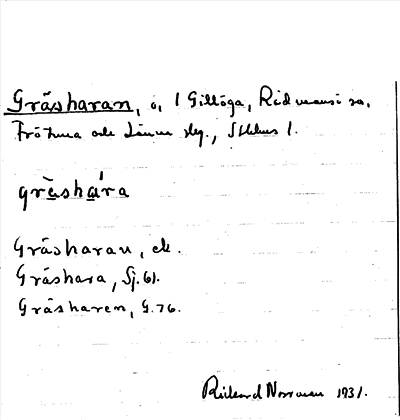 Gräsharan, ö, i Gillöga, Ridmansö sn,
Frötuna och Länna slg., Sthlms l.
gràshá̀ra
Gräsharan, ek.
Gräshara, Sj. 61.
Gräsharen, G. 76.
Rickard Norrman 1931.